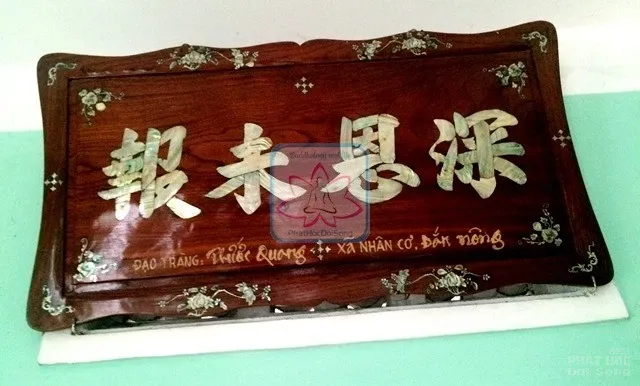 深恩未報
ĐẠO TRÀNG: Phước Quang
XÃ NHÂN CƠ, Đắk Nông
PhatHocDoiSong
PHAT HOC
Doi Song